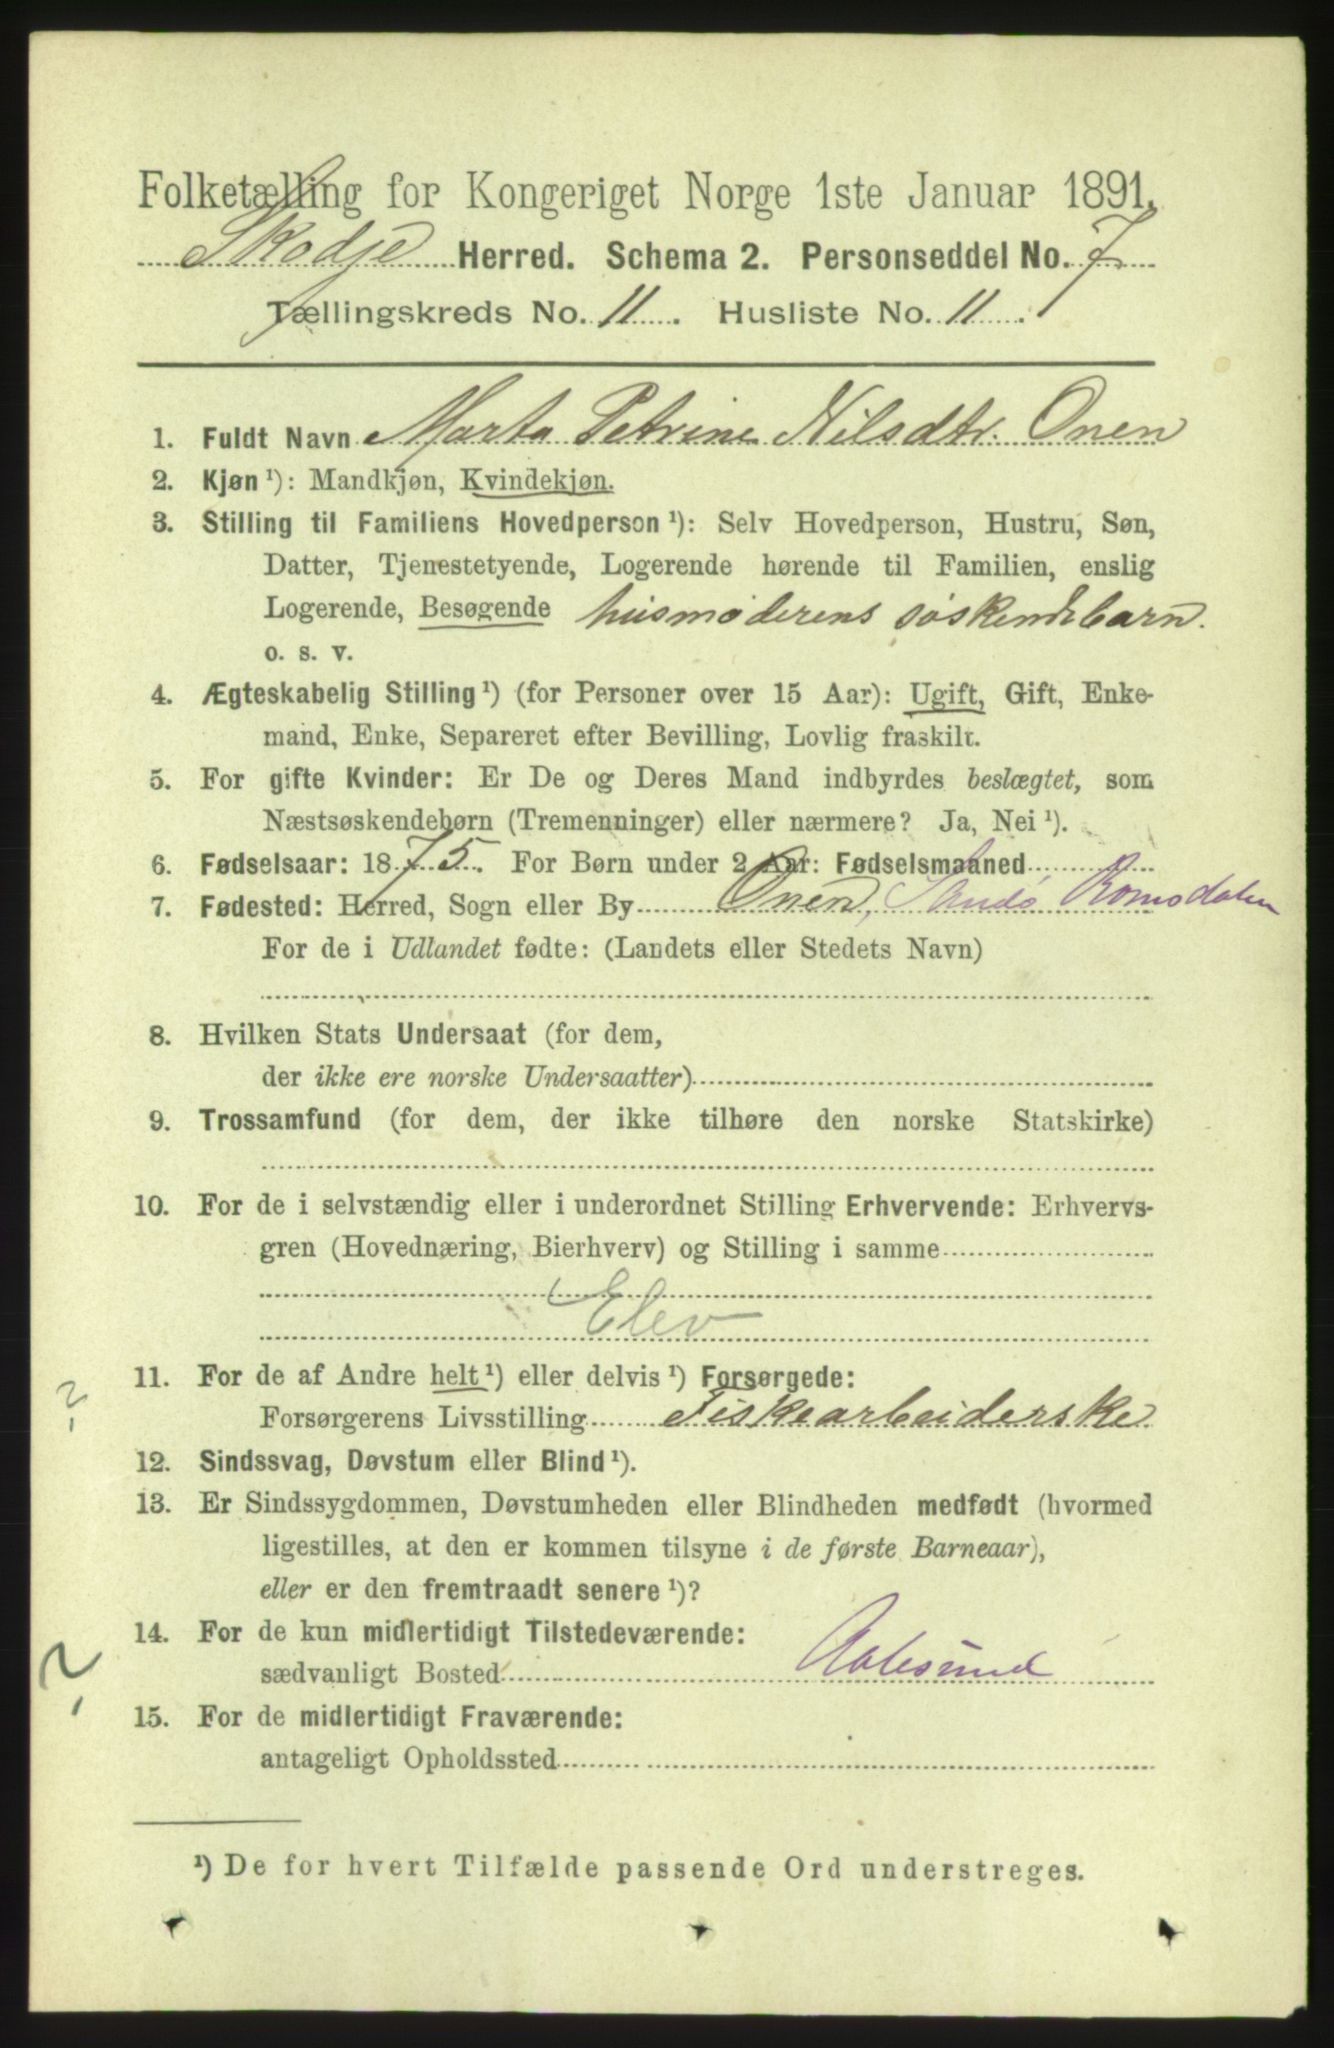 Folketælling for Kongeriget Norge 1ste Januar 1891.
Skodje Herred. Schema 2. Personseddel No. 7
Tællingskreds No. 11. Husliste No. 11.
1. Fuldt Navn Marta Petrine Nilsdtr. Onen
2. Kjøn ¹): Mandkjøn, Kvindekjøn.
3. Stilling til Familiens Hovedperson ¹): Selv Hovedperson, Hustru, Søn,
Datter, Tjenestetyende, Logerende hørende til Familien, enslig
Logerende, Besøgende husmoderens søskendebarn.
o. s. v.
4. Ægteskabelig Stilling ¹) (for Personer over 15 Aar): Ugift, Gift, Enke-
mand, Enke, Separeret efter Bevilling, Lovlig fraskilt.
5. For gifte Kvinder: Er De og Deres Mand indbyrdes beslægtet, som
Næstsøskendebørn (Tremenninger) eller nærmere? Ja, Nei ¹).
6. Fødselsaar: 1875. For Børn under 2 Aar: Fødselsmaaned
7. Fødested: Herred, Sogn eller By Onen, Sandø Romsdalen
For de i Udlandet fødte: (Landets eller Stedets Navn)
8. Hvilken Stats Undersaat (for dem,
der ikke ere norske Undersaatter)
9. Trossamfund (for dem, der ikke tilhøre den norske Statskirke)
10. For de i selvstændig eller i underordnet Stilling Erhvervende: Erhvervs-
gren (Hovednæring, Bierhverv) og Stilling i samme
Elev
11. For de af Andre helt ¹) eller delvis ¹) Forsørgede:
Forsørgerens Livsstilling Fiskearbeiderske
?
12. Sindssvag, Døvstum eller Blind ¹).
13. Er Sindssygdommen, Døvstumheden eller Blindheden medfødt (hvormed
ligestilles, at den er kommen tilsyne i de første Barneaar),
eller er den fremtraadt senere ¹)?
14. For de kun midlertidigt Tilstedeværende:
sædvanligt Bosted Aalesund
?
15. For de midlertidigt Fraværende:
antageligt Opholdssted
¹) De for hvert Tilfælde passende Ord understreges.